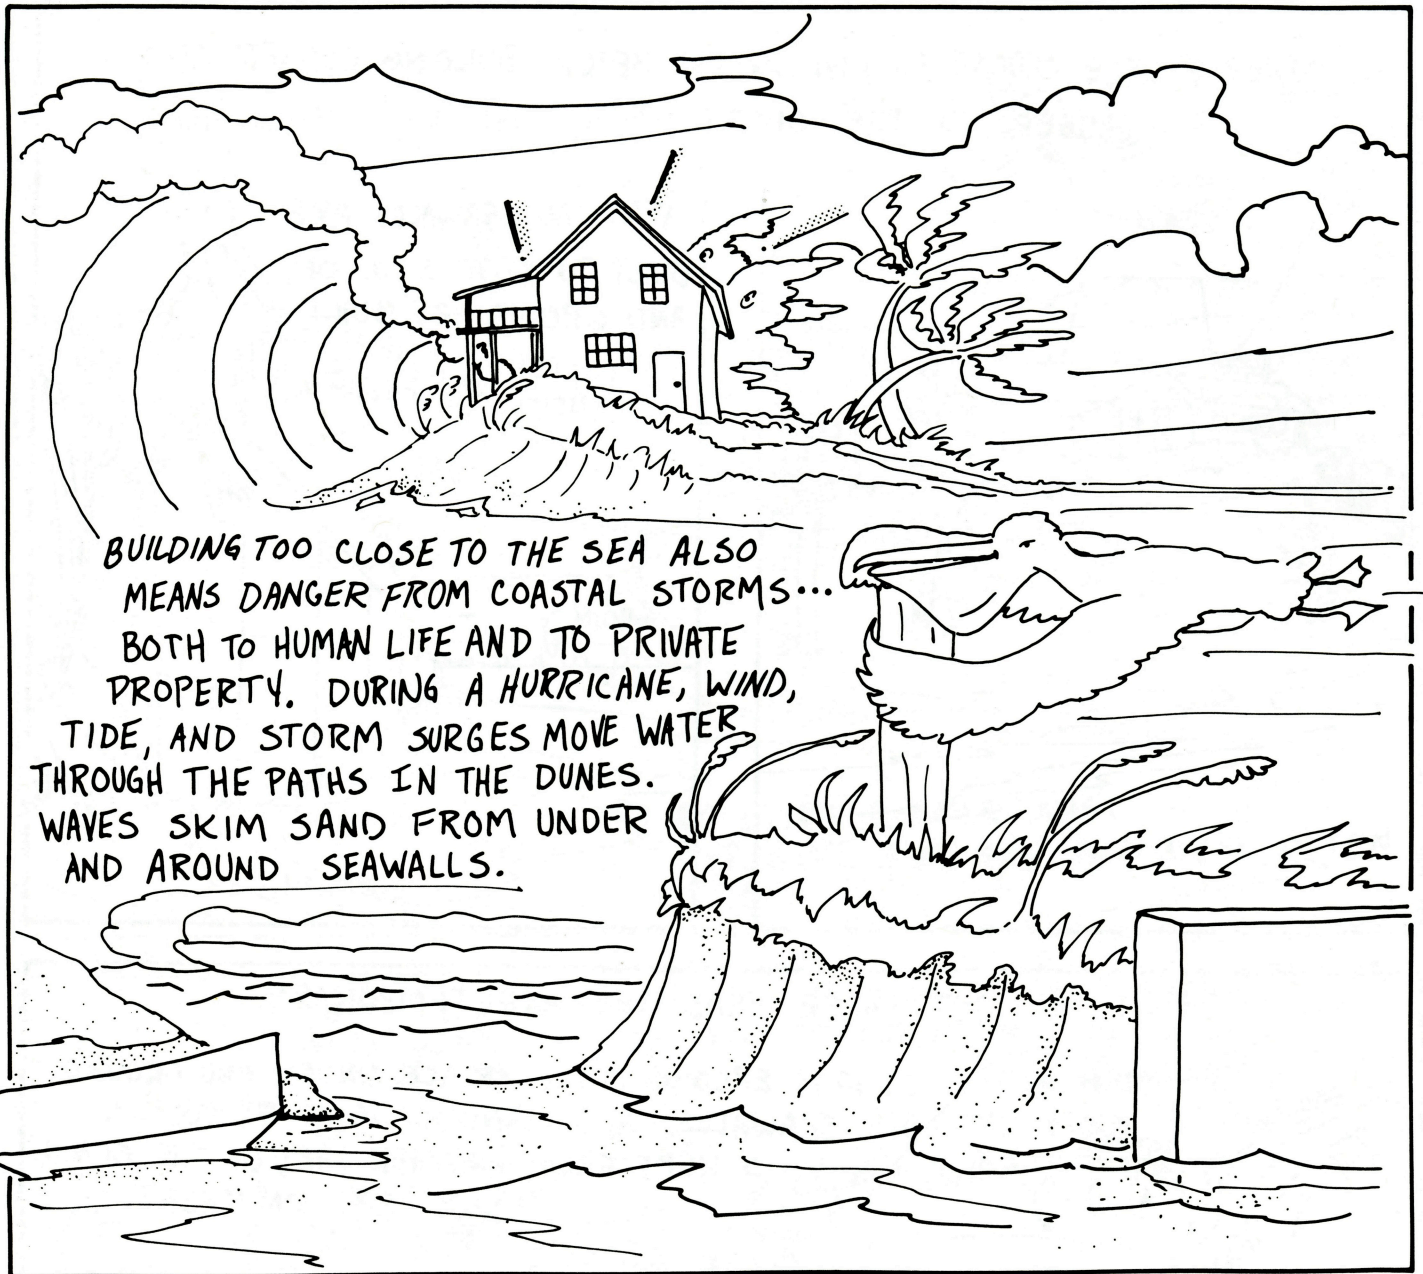 BUILDING TOO CLOSE TO THE SEA ALSO
MEANS DANGER FROM COASTAL STORMS...
BOTH TO HUMAN LIFE AND TO PRIVATE
PROPERTY. DURING A HURRICANE, WIND,
TIDE, AND STORM SURGES MOVE WATER
THROUGH THE PATHS IN THE DUNES.
WAVES SKIM SAND FROM UNDER
AND AROUND SEAWALLS.